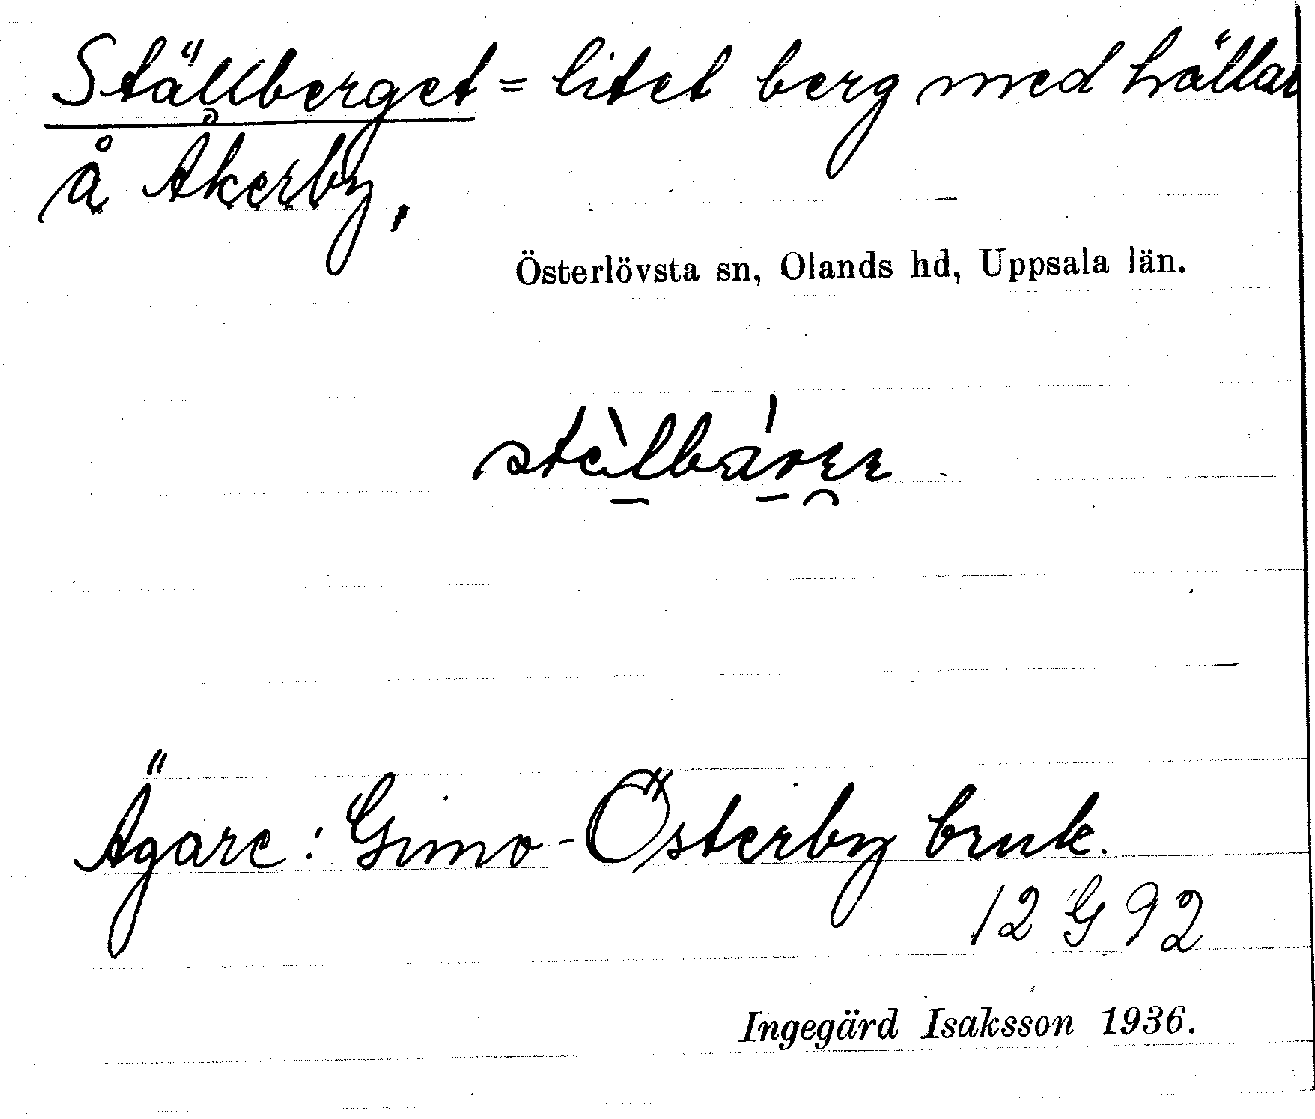 Ställberget = litet berg med hällar
å Åkerby,
Österlövsta sn, Olands hd, Uppsala län.
Ägare: Gimo-Österby bruk.
12 G 92
Ingegärd Isaksson 1936.